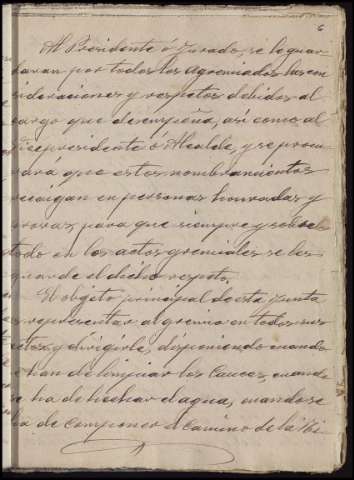 6
Al Presidente ó Jurado, se le guar
daran por todos los agremiados las con
sideraciones y respetos debidos al
cargo que desempeña, así como al
Vicepresidente ó Alcalde, y se procu
rará que estos nombramientos
recaigan en personas honradas y
para que siempre y sobre
todo en los actos gremiales se les
guarde el dicho respeto.
El objeto principal de esta Junta
es representar al gremio en todos sus
actos y dirigirle, disponiendo cuando
se han de limpiar los Cauces, cuando
se ha de hechar el agua, cuando se
ha de componer el Camino de la Ri